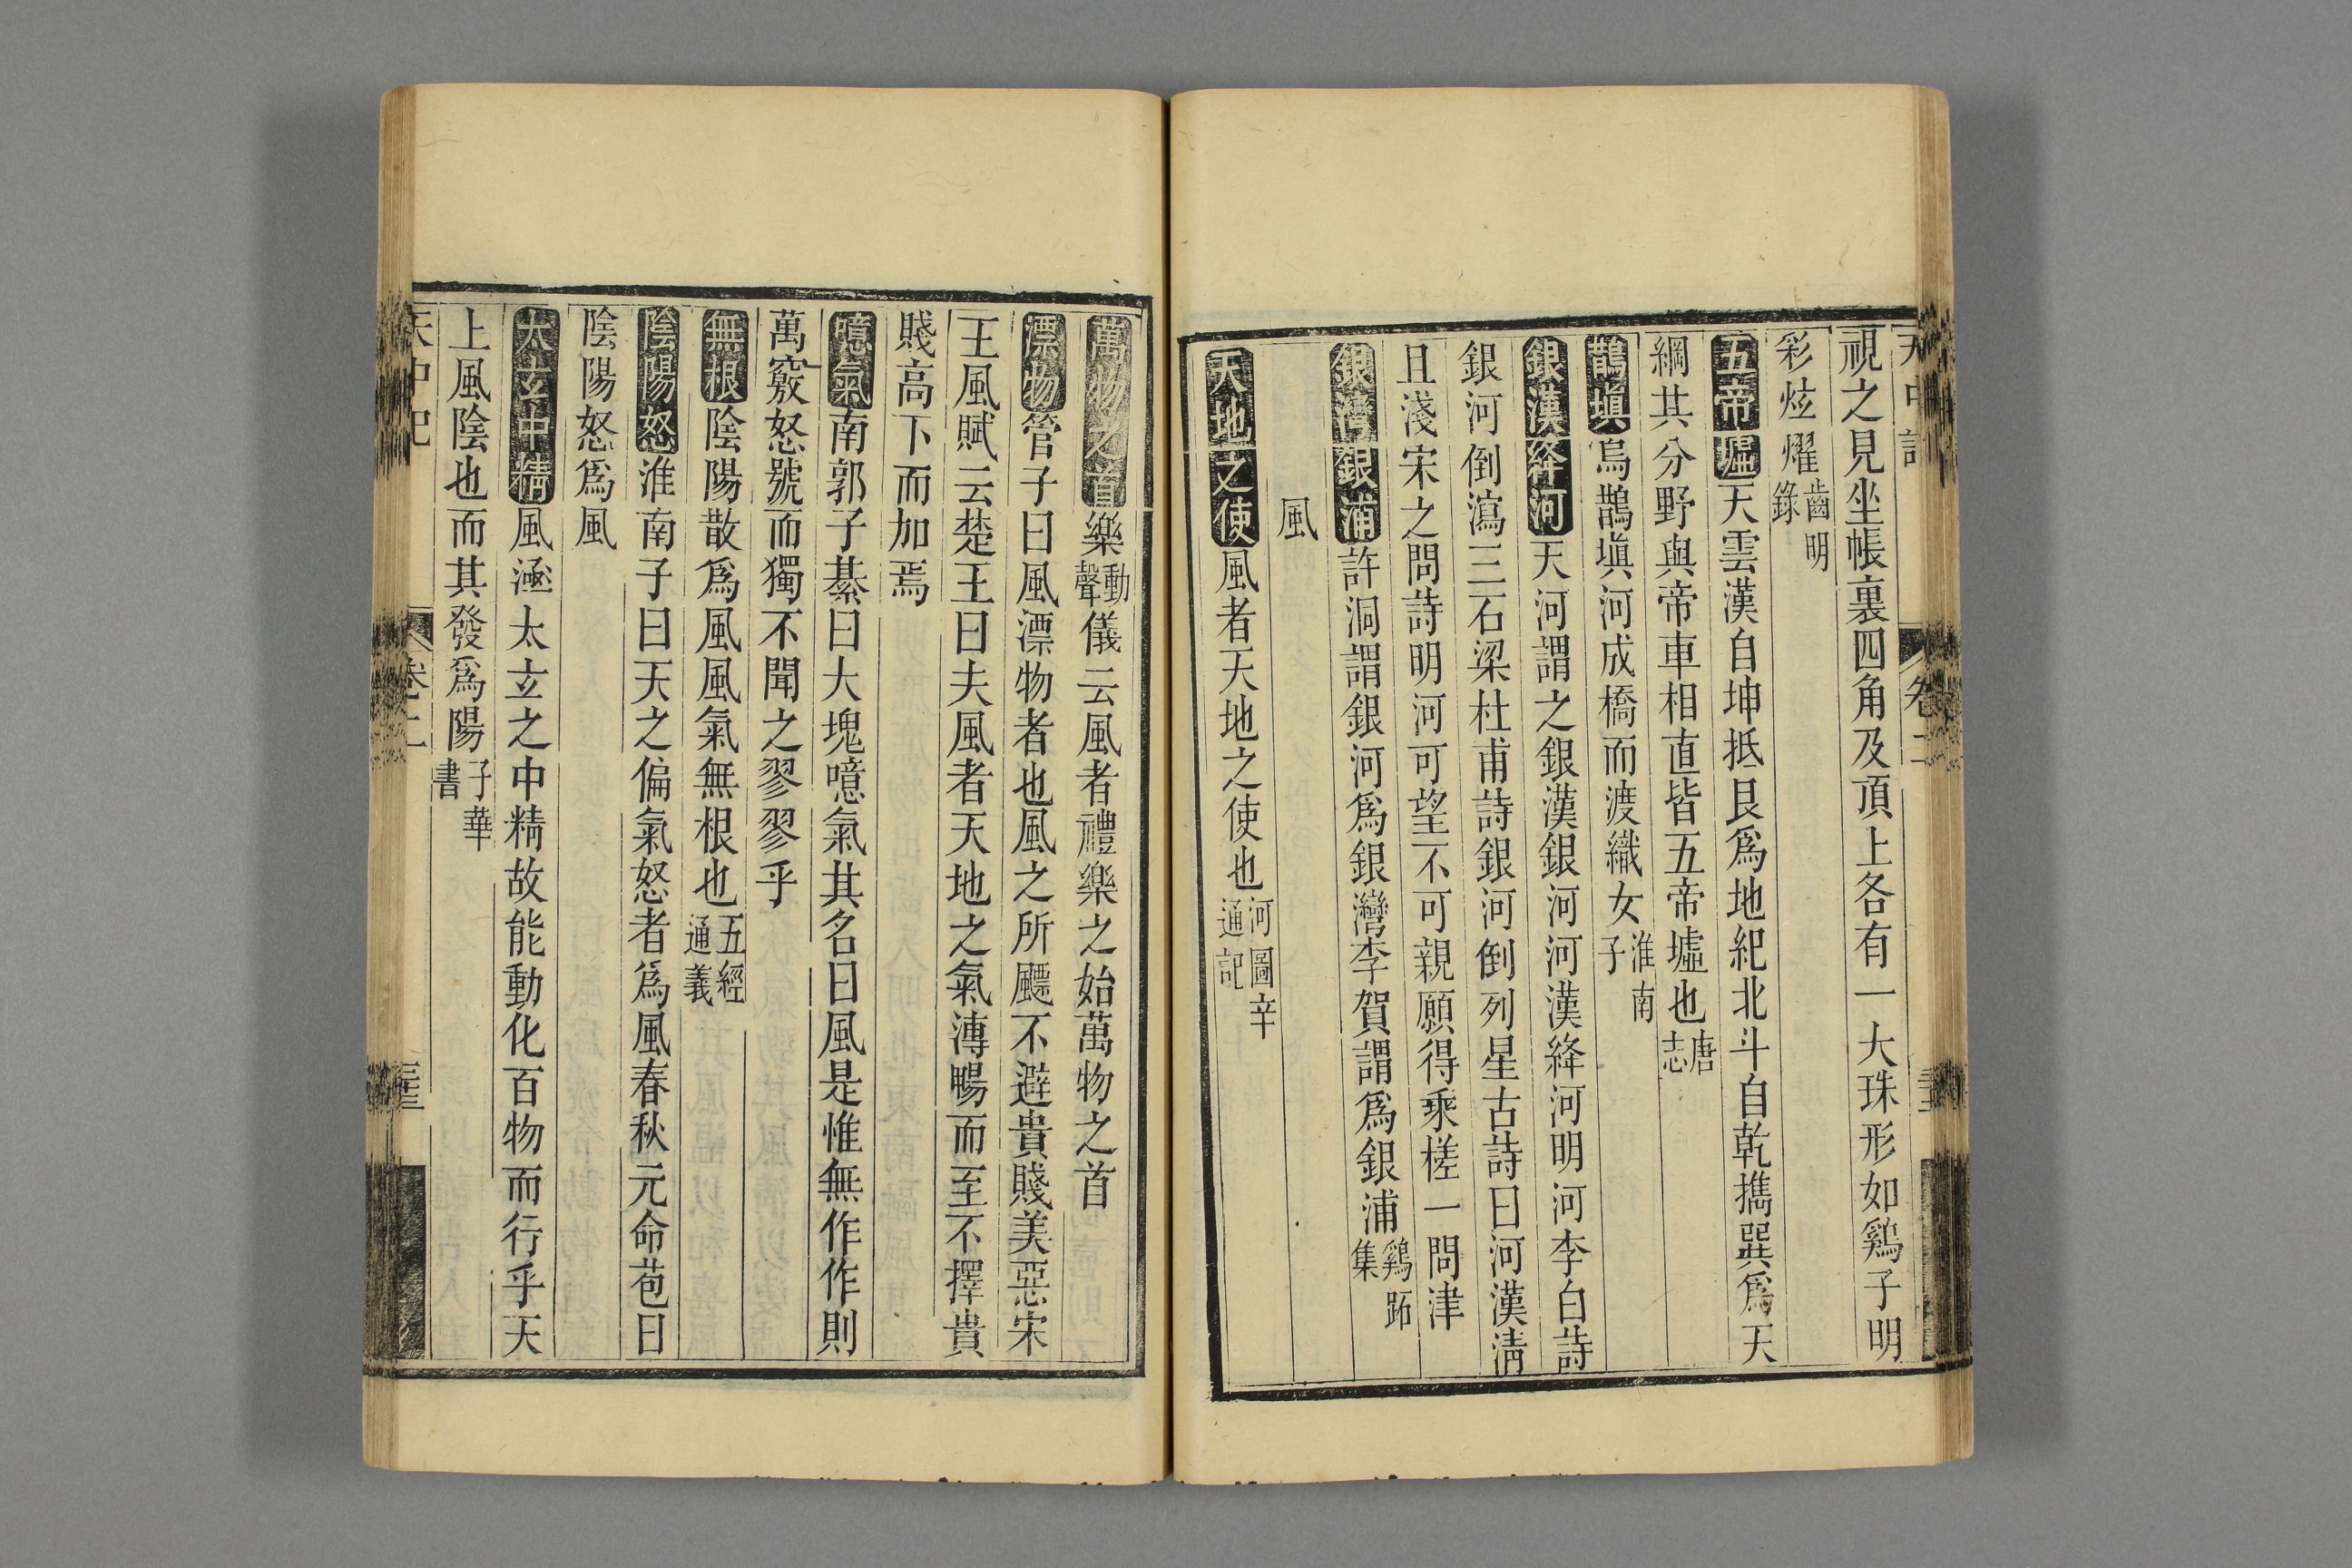 視之見坐帳裏四角及頂上各有一大珠形如鷄子明
彩炫燿齒明錄
五帝墟天雲漢自坤抵艮爲地紀北斗自乾㩦巽爲天
綱其分野與帝車相直皆五帝墟也唐志
鵲塡烏鵲塡河成橋而渡織女淮南子
銀漢絳河天河謂之銀漢銀河河漢絳河明河李白詩
銀河倒瀉三石梁杜甫詩銀河倒列星古詩曰河漢淸
且淺宋之問詩明河可望不可親願得乘槎一問津
銀灣銀浦許洞謂銀河爲銀灣李賀謂爲銀浦鷄跖集
風
天地之使風者天地之使也河圖辛通記
萬物之首樂動聲儀云風者禮樂之始萬物之首
漂物管子曰風漂物者也風之所飃不避貴賤美惡宋
王風賦云楚王曰夫風者天地之氣溥暢而至不擇貴
賤高下而加焉
噫氣南郭子綦曰大塊噫氣其名曰風是惟無作作則
萬竅怒號而獨不聞之翏翏乎
無根陰陽散爲風風氣無根也五經通義
陰陽怒淮南子曰天之偏氣怒者爲風春秋元命苞曰
陰陽怒爲風
太玄中精風涵太玄之中精故能動化百物而行乎天
上風陰也而其發爲陽子華書
天中記
卷二